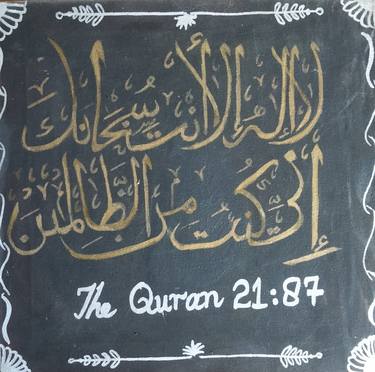 لا إله إلا أنت سبحانك
إني كنت من الظالمين
The Quraan 21:87